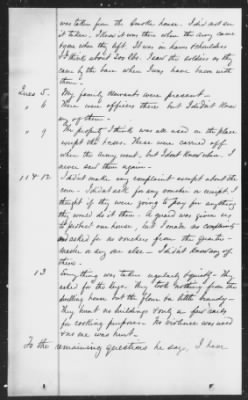 was taken from the smoke house. I did not see
it taken. I know it was there when the army came
& gone when they left. It was in hams & shoulders
I think about 200 lbs. I saw the soldiers as they
came by the barn when I was have been with
them.
Ques 5. My family servants were present.
" 6 There were officers there but I didn't know
any of them.
" 9 The property I think was all used on the place
except the horses. These were carried off
when the army went. But I don't know where. I
never saw them again.
11 & 12 I did not make any complaint except about the
corn. I did not ask for any voucher or receipt. I
thought if they were going to pay for anything
they would do it then. A guard was given us
to protect our house, but I made no complaints
nor asked for no vouchers from the quarter-
master or any one else. I didn't know any of
them.
13 Everything was taken regularly & quietly - they
asked for the keys. They took nothing from the
dwelling house but the flour & a little brandy -
They burnt no buildings & only a few rails
for cooking purposes. No violence was used
& no one was hurt.
To the remaining questions he says, I have